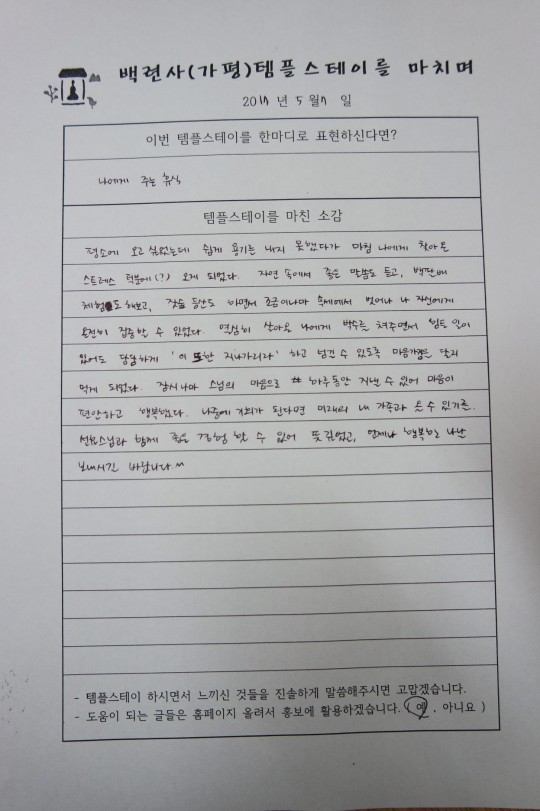 백련사(가평)템플스테이를 마치며
2017 년 5 월 7 일
이번 템플스테이를 한마디로 표현하신다면?
나에게 주는 휴식
템플스테이를 마친 소감
평소에 오고 싶었는데 쉽게 용기를 내지 못했다가 마침 나에게 찾아온
스트레스 덕분에(?) 오게 되었다. 자연 속에서 좋은 말씀도 듣고, 백팔배
체험도 해보고, 잣숲 등산도 하면서 조금이나마 속세에서 벗어나 나 자신에게
온전히 집중할 수 있었다. 열심히 살아온 나에게 박수를 쳐주면서 힘든 일이
있어도 당당하게 '이 또한 지나가리라' 하고 넘길 수 있도록 마음가짐을 단디
먹게 되었다. 잠시나마 스님의 마음으로 하루동안 지낼 수 있어 마음이
편안하고 행복했다. 나중에 기회가 된다면 미래의 내 가족과 올 수 있기를.
스님과 함께 좋은 경험 할 수 있어 뜻깊었고, 언제나 행복한 나날
보내시길 바랍니다^^
- 템플스테이 하시면서 느끼신 것들을 진솔하게 말씀해주시면 고맙겠습니다.
- 도움이 되는 글들은 홈페이지 올려서 홍보에 활용하겠습니다. ( 예 , 아니요 )